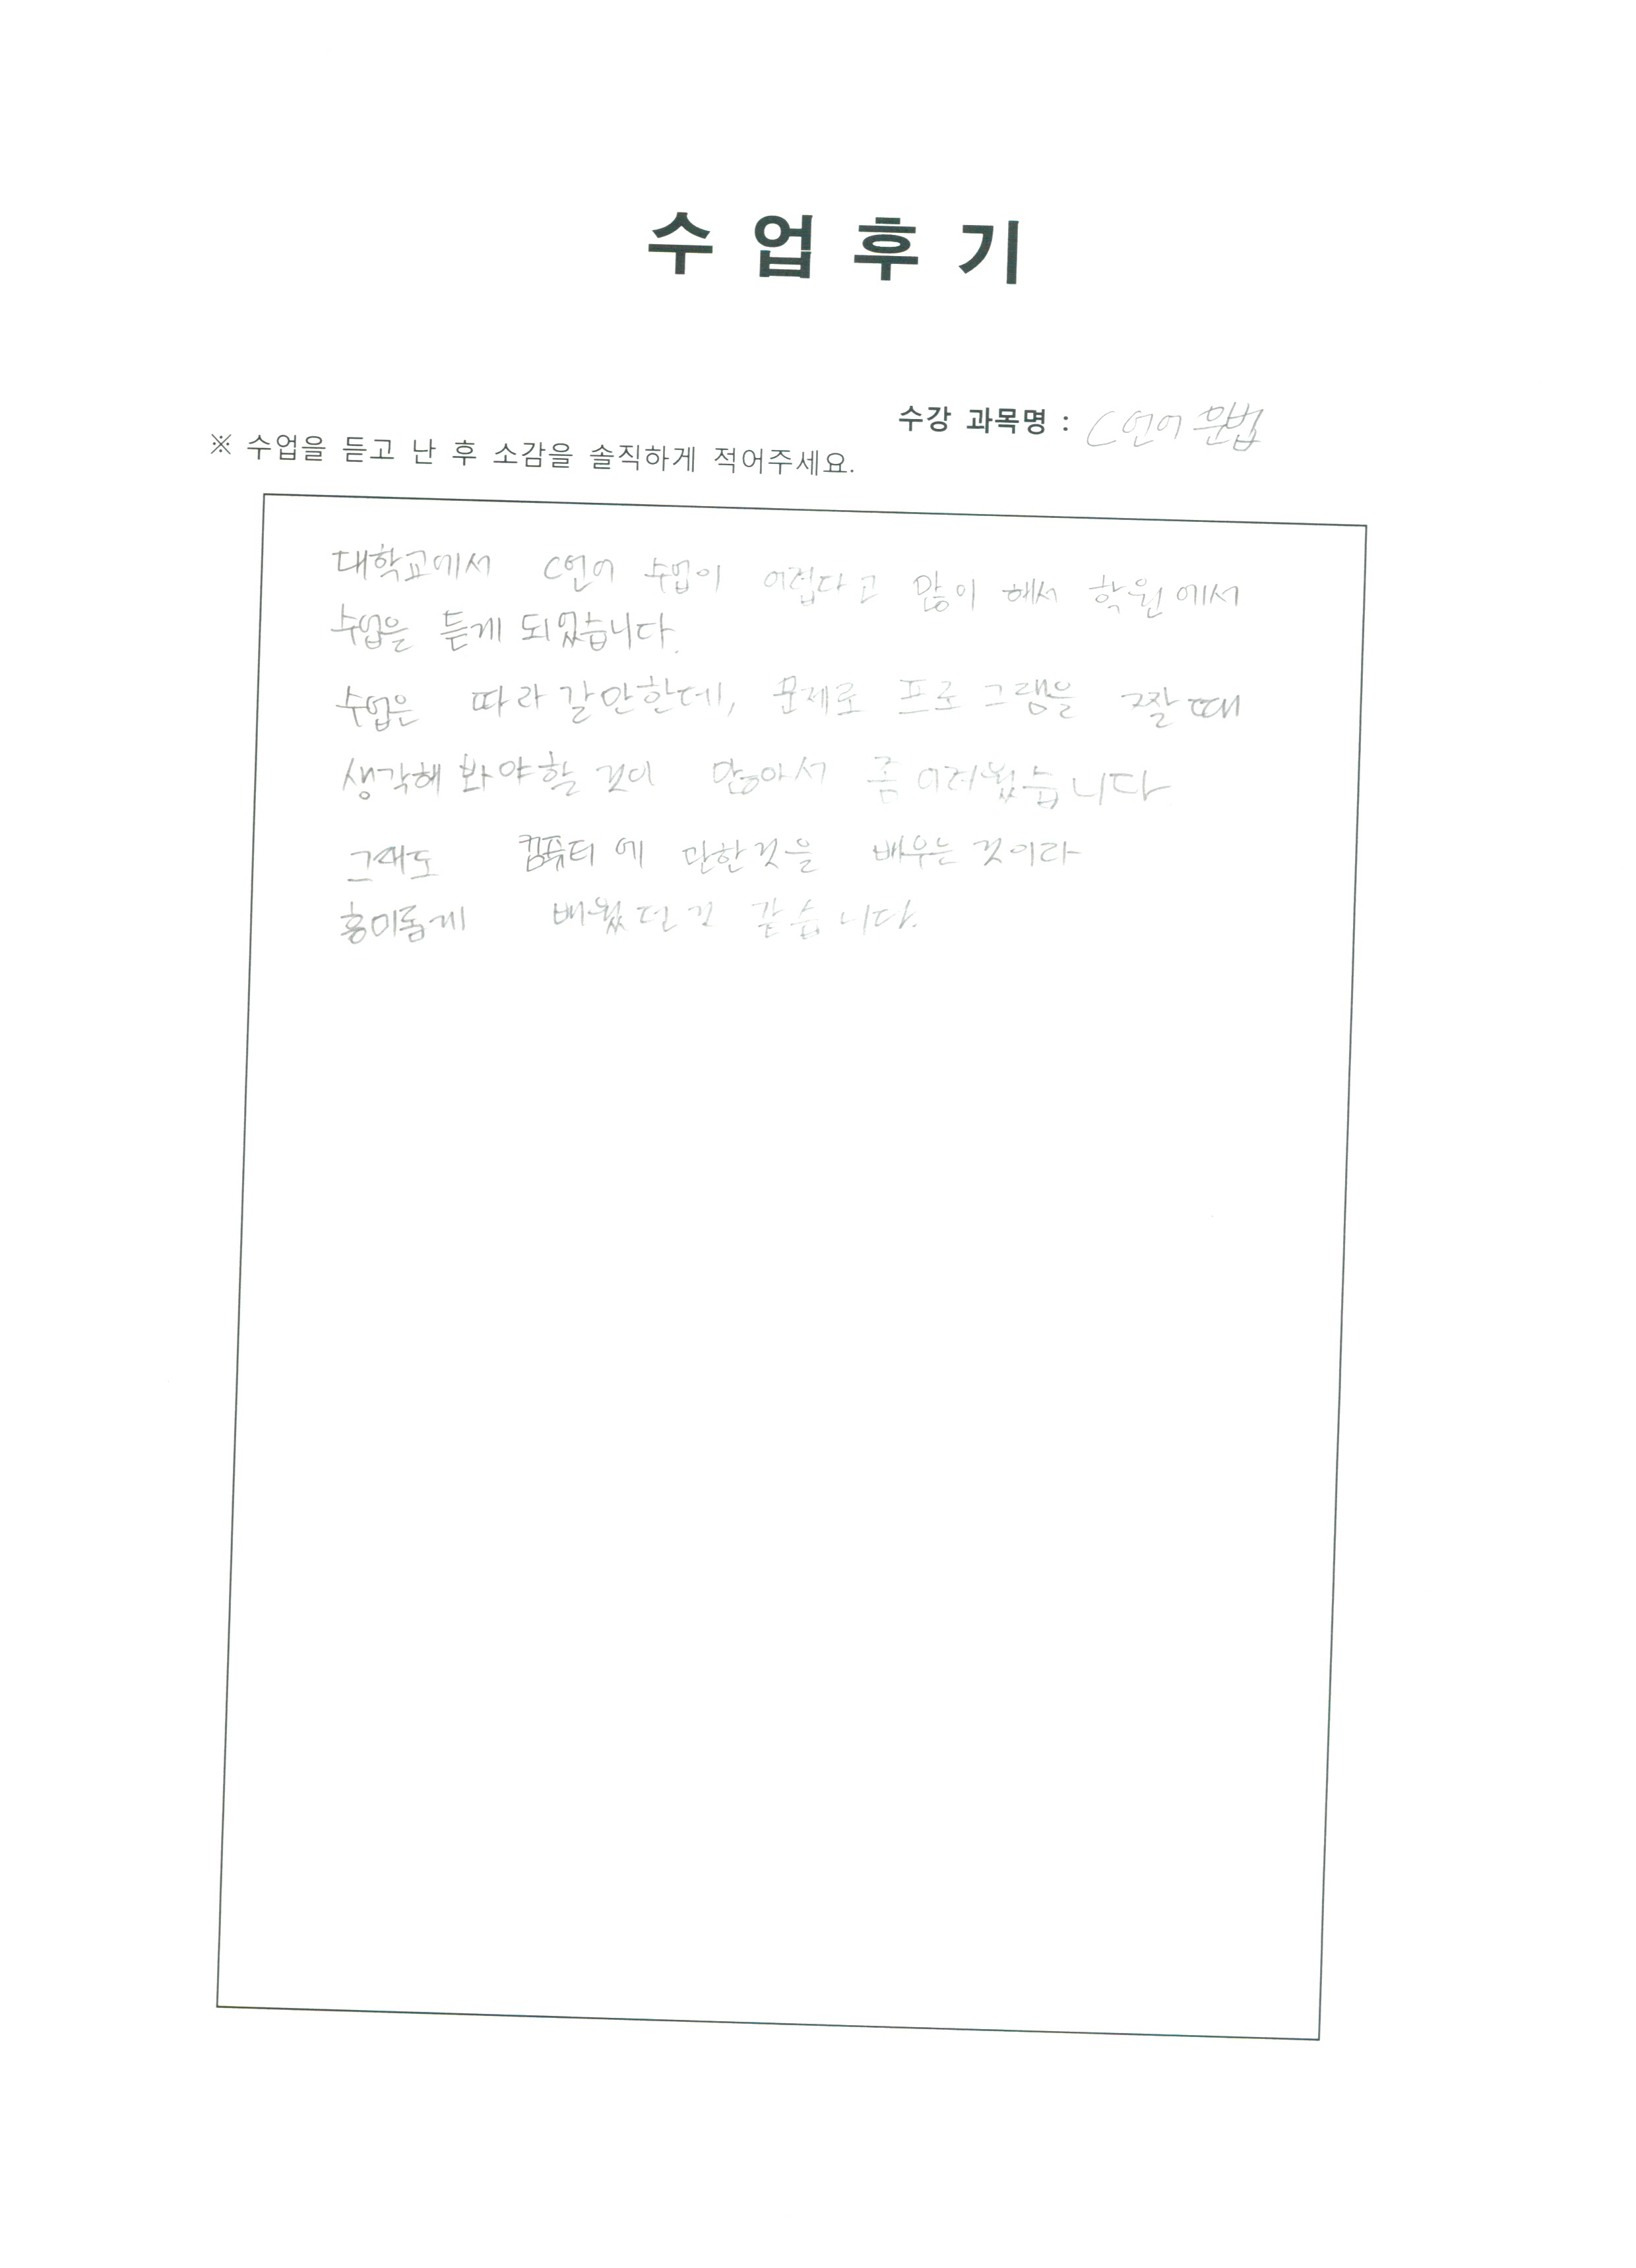 수 업 후 기
수강 과목명 : C언어 문법
※ 수업을 듣고 난 후 소감을 솔직하게 적어주세요.
대학교에서 C언어 수업이 어렵다고 많이 해서 학원에서
수업을 듣게 되었습니다.
수업은 따라갈만한데, 문제로 프로그램을 짤 때
생각해 봐야할 것이 많아서 좀 어려웠습니다
그래도 컴퓨터에 관한것을 배우는 것이라
흥미롭게 배웠던 것 같습니다.